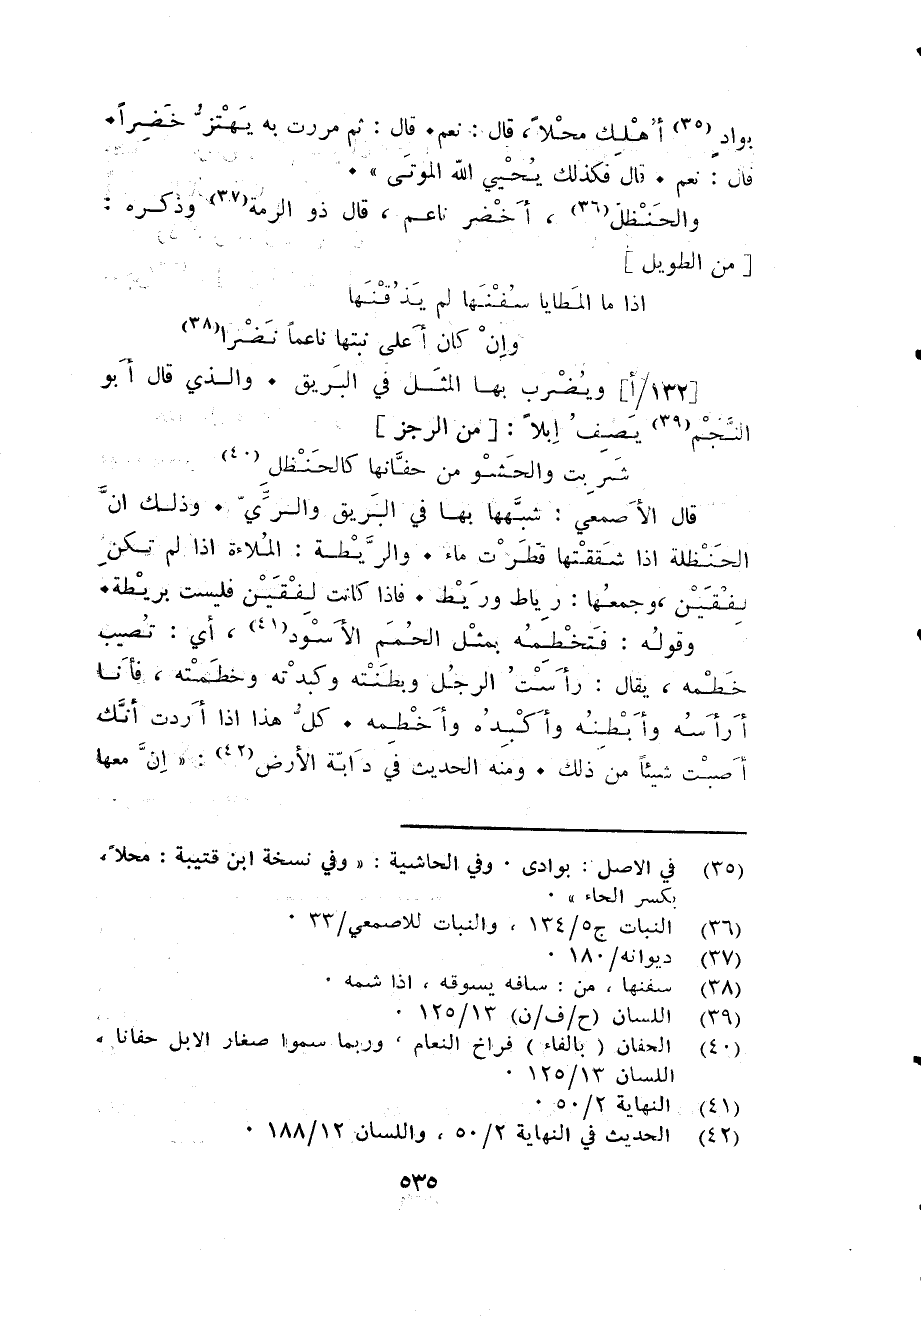 بوادٍ(٣٥) أهْلِك محْلاً، قال : نعم٠ قال : ثم مررت به يَهْتزُّ خَضِراً٠
قال : نعم ٠ قال فكذلك يُحْيي الله الموتَى » ٠
والحَنْظلَ(٣٦) ، أَخْضر ناعم ، قال ذو الرمة(٣٧) وذكره :
[ من الطويل ]
اذا ما المَطايا سُفْنَها لم يَذُقْنَها
وإنْ كان أَعلى نبتها ناعماً نَضْرا(٣٨)
[١٣٢/أ] ويُضْرب بها المثَل في البَريق ٠ والذي قال أَبو
النَّجْم(٣٩) يَصِفُ إبلاً : [ من الرجز ]
شَرِبت والحَشْو من حفَّانها كالحَنْظلِ(٤٠)
قال الأَصمعي : شبَّهها بها في البَريق والرِّيّ ٠ وذلك انَّ
الحَنْظلة اذا شَققتْها قطَرْت ماء ٠ والرَّيْطة : المُلاءة اذا لم تكن
لِفْقَيْن ،وجمعها : رِياط ورَيْط ٠ فاذا كانت لِفْقَيْن فليست بريْطة٠
وقولُه : فتَخْطِمُه بمثْل الحُمَم الأَسْود(٤١) ، أي : تُصيب
خَطْمه ، يقال : رأَسْتُ الرجُل وبطَنْته وكبدْته وخطَمْته ، فأَنا
أَرأَسُه وأَبْطنُه وأَكْبِدُه وأَخْطِمه ٠ كلُّ هذا اذا أَردت أنَّك
أَصبْت شيئاً من ذلك ٠ ومنه الحديث في دَابّة الأرض(٤٢) : « إنَّ معها
(٣٥) في الاصل : بوادى ٠ وفي الحاشية : « وفي نسخة ابن قتيبة : محلاً،
بكسر الحاء » ٠
(٣٦) النبات ج٥/١٣٤ ، والنبات للاصمعي/٣٣ ٠
(٣٧) ديوانه/١٨٠ ٠
(٣٨) سفنها ، من : سافه يسوقه ، اذا شمه ٠
(٣٩) اللسان (ح/ف/ن) ١٢٥/١٣ ٠
(٤٠) الحفان ( بالفاء ) فراخ النعام ، وربما سموا صغار الابل حفانا ،
اللسان ١٢٥/١٣ ٠
(٤١) النهاية ٥٠/٢ ٠
(٤٢) الحديث في النهاية ٥٠/٢ ، واللسان ١٨٨/١٢ ٠
٥٣٥